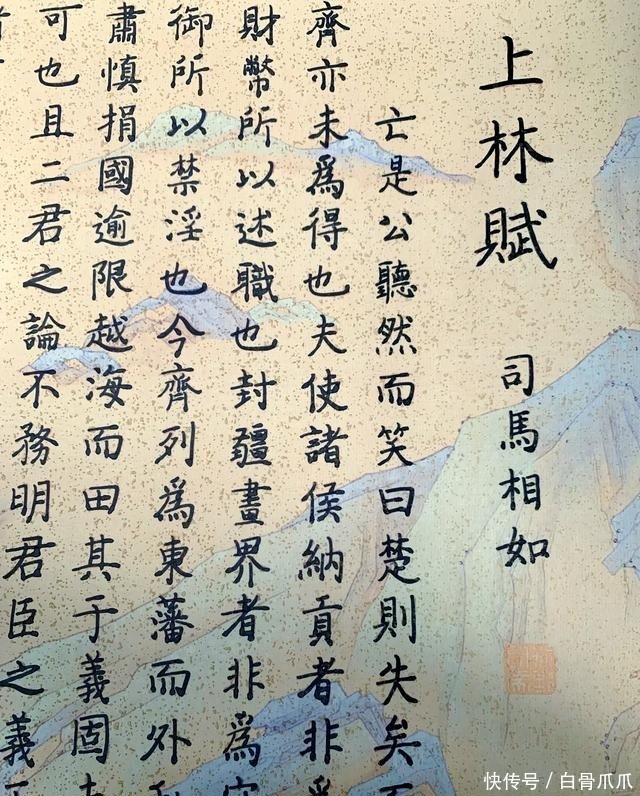 上林賦
司馬相如
亡是公聽然而笑曰楚則失矣
齊亦未爲得也夫使諸侯納貢者非
財幣所以述職也封疆畫界者非爲
御所以禁淫也今齊列爲東藩而外
肅慎捐國逾限越海而田其于義固
可也且二君之論不務明君臣之義
快传号 / 白骨爪爪